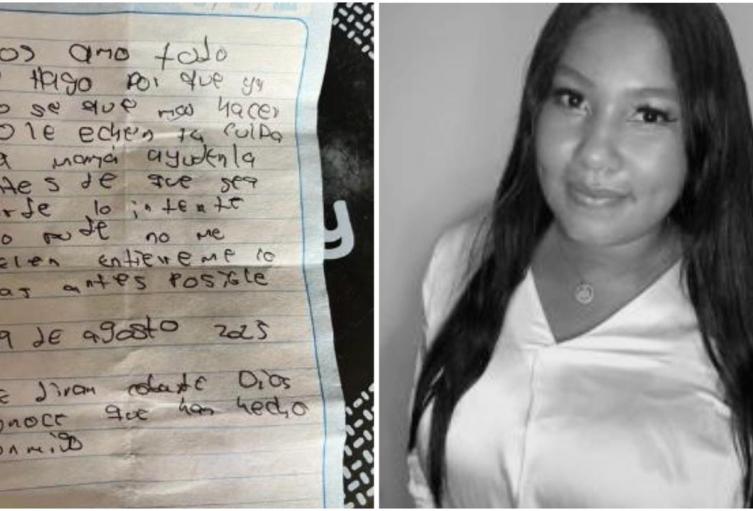 os amo todo
Hago por que ya
o se que mas hacer
o le echen la culpa
a mamá ayudenla
tes de que sea
rde lo intente
o pude no me
elen entiereme lo
as antes posible
9 de agosto 2025
e diran cobarde Dios
onoce que han hecho
onmigo
y